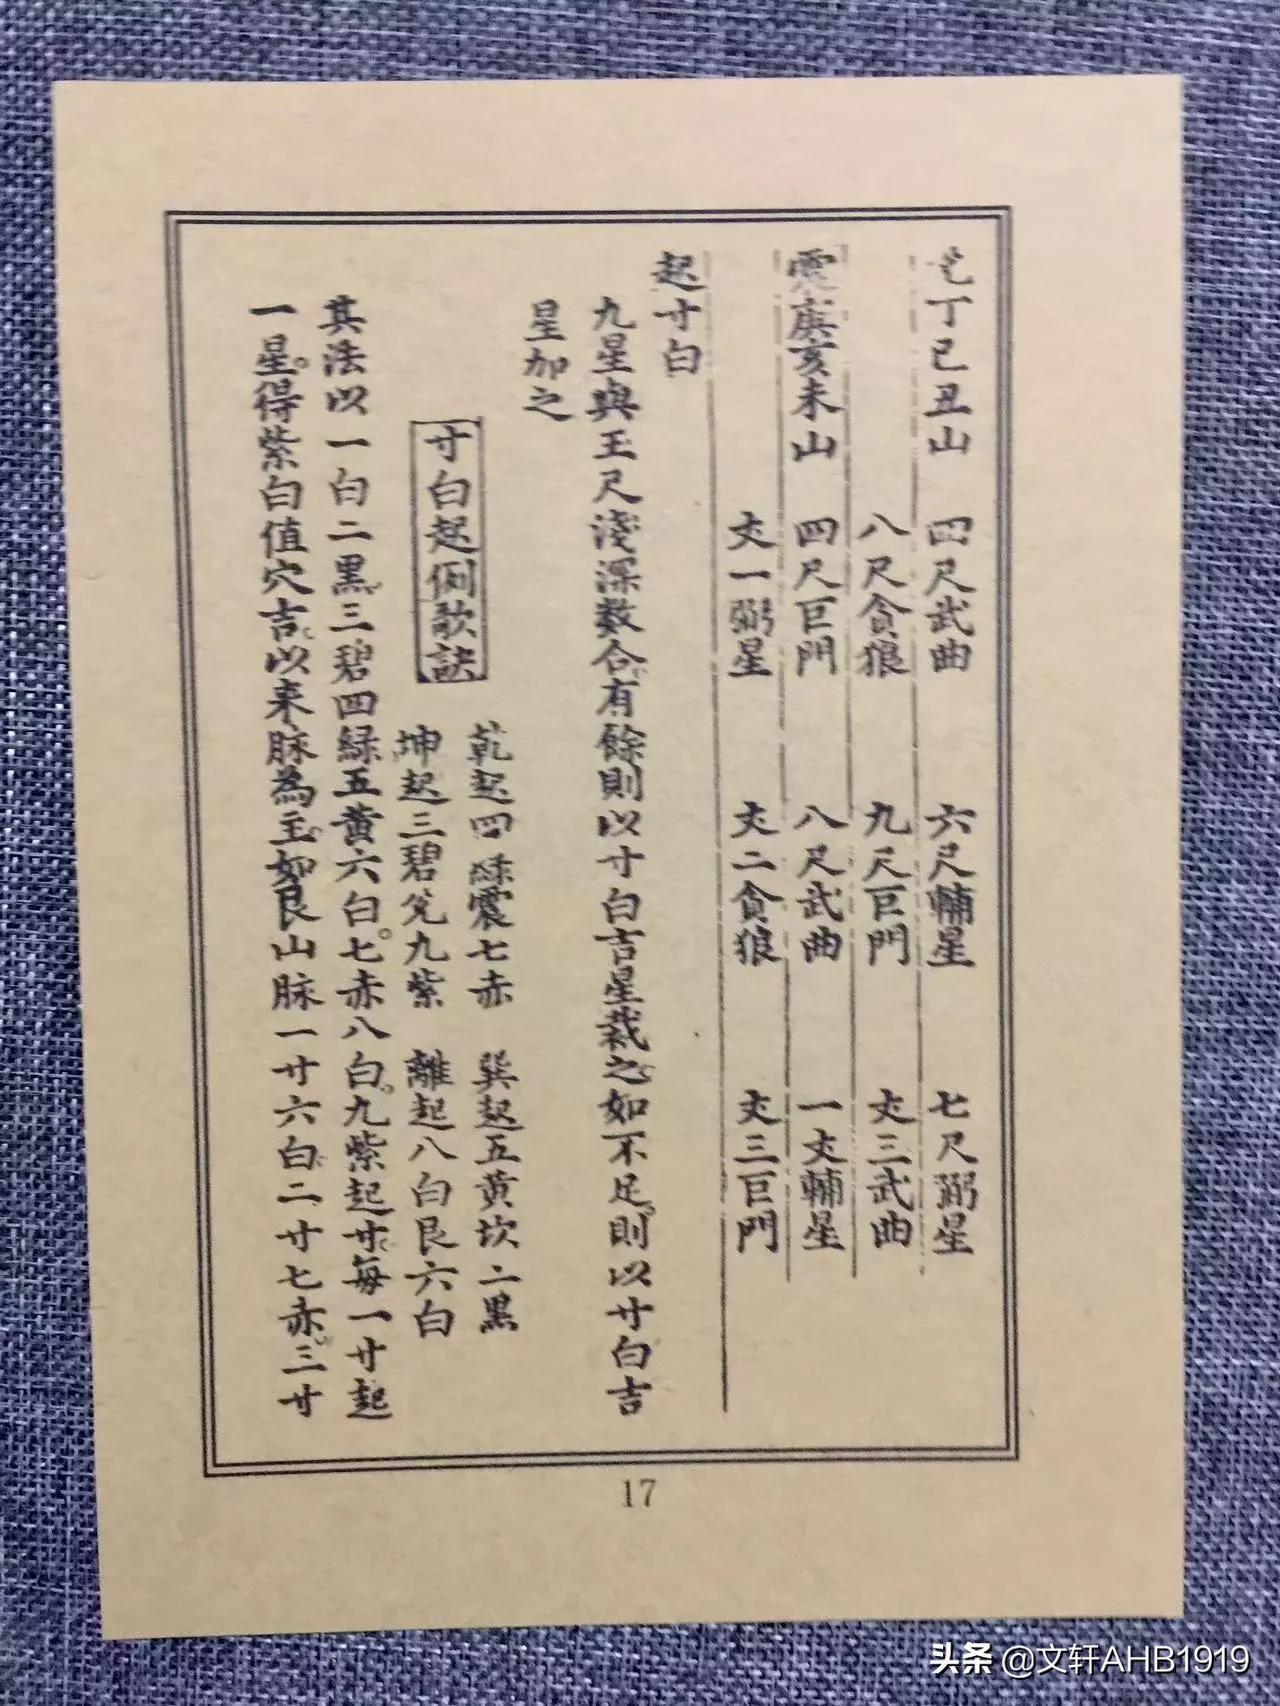 兌丁巳丑山　四尺武曲　六尺輔星　七尺弼星
八尺貪狼　九尺巨門　丈三武曲
震庚亥未山　四尺巨門　八尺武曲　一丈輔星
丈一弼星　丈二貪狼　丈三巨門
起寸白
九星與玉尺淺深数合有餘則以寸白吉星裁之如不足則以寸白吉
星加之
寸白起例歌訣
乾起四綠震七赤　巽起五黃坎二黑
坤起三碧兌九紫　離起八白艮六白
其法以一白二黑三碧四綠五黃六白。七赤八白。九紫起寸每一寸起
一星。得紫白值穴吉以来脉為主如艮山脉一寸六白二寸七赤。三寸
17
头条 @文轩AHB1919